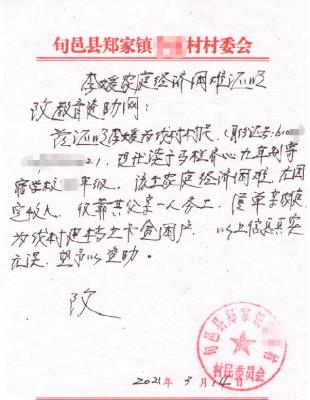 旬邑县郑家镇 村村委会
李媛家庭经济困难证明
致教育资助网：
兹证明李媛为我村村民（身份证号：6100
2），现就读于 九年制寄
宿学校 年级。该生家庭经济困难，
仅靠其父亲一人务工，
为我村建档立卡贫困户，以上信息真实
无误，望予以资助。
致
旬邑县郑家镇 村
村民委员会
2021年3月14日